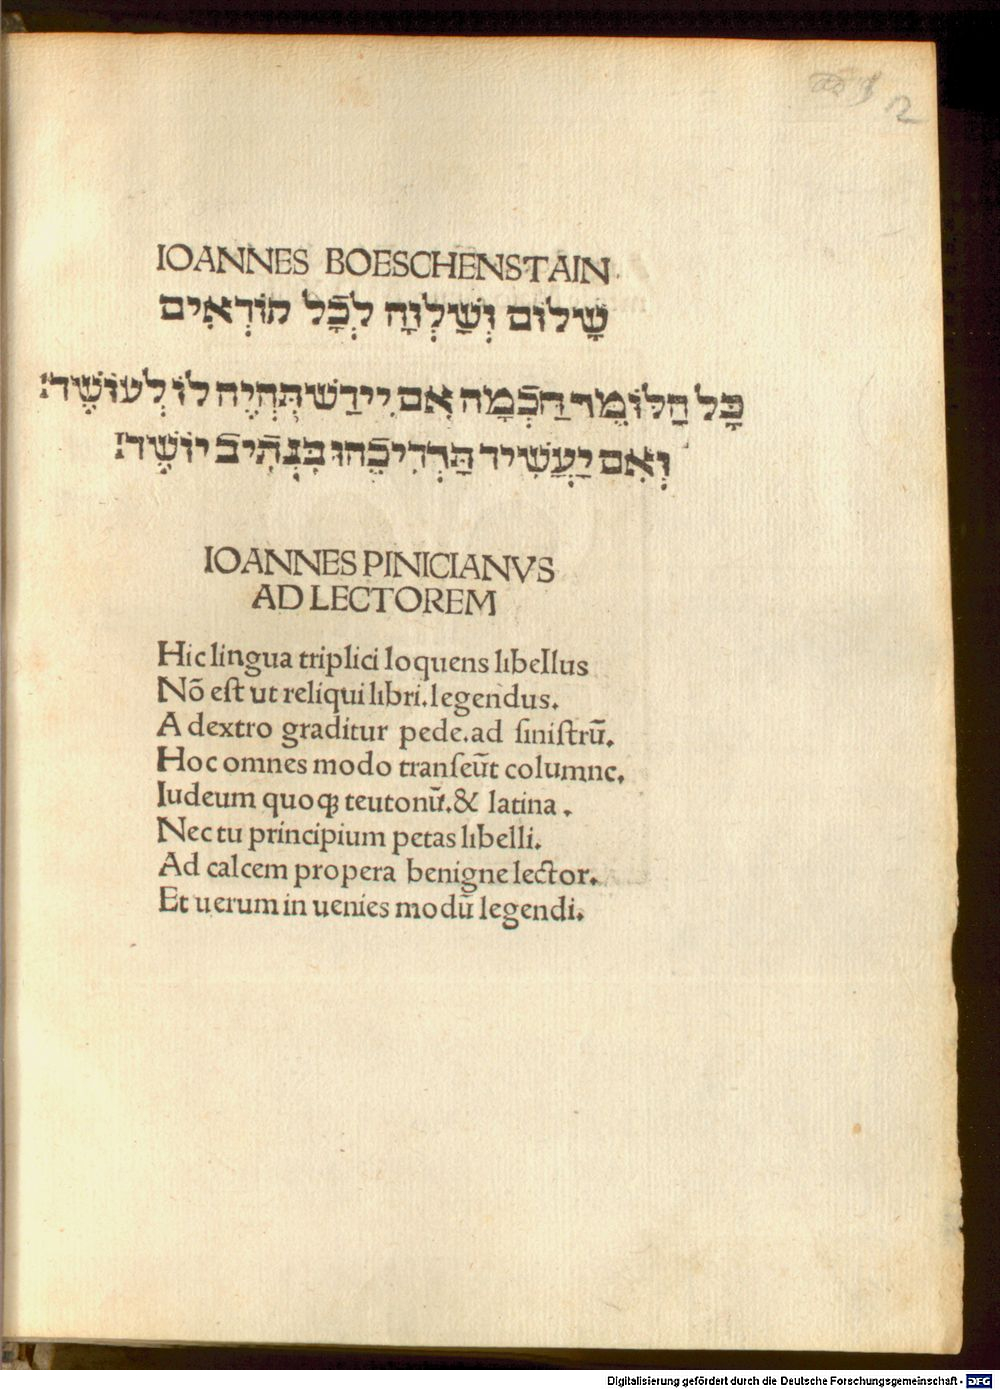 12
IOANNES BOESCHENSTAIN.
שָׁלוֹם וְשַׁלְוָה לְכָל קוֹרְאִים
כָּל הַלוֹמֵר הַכְמָה אִם יִירַשׁ תִּהְיֶה לוֹ לְעוֹשֶׁר׃
וְאִם יַעֲשִׁיר תַּרְדִיכֵהוּ בִּנְתִיב יוֹשֶׁר׃
IOANNES PINICIANVS
AD LECTOREM
Hic lingua triplici loquens libellus
Nõ est ut reliqui libri.legendus.
A dextro graditur pede.ad sinistrũ.
Hoc omnes modo transeũt columne.
Iudeum quoqꝫ teutonũ.& latina.
Nec tu principium petas libelli.
Ad calcem propera benigne lector.
Et uerum in uenies modũ legendi.
Digitalisierung gefördert durch die Deutsche Forschungsgemeinschaft - DFG